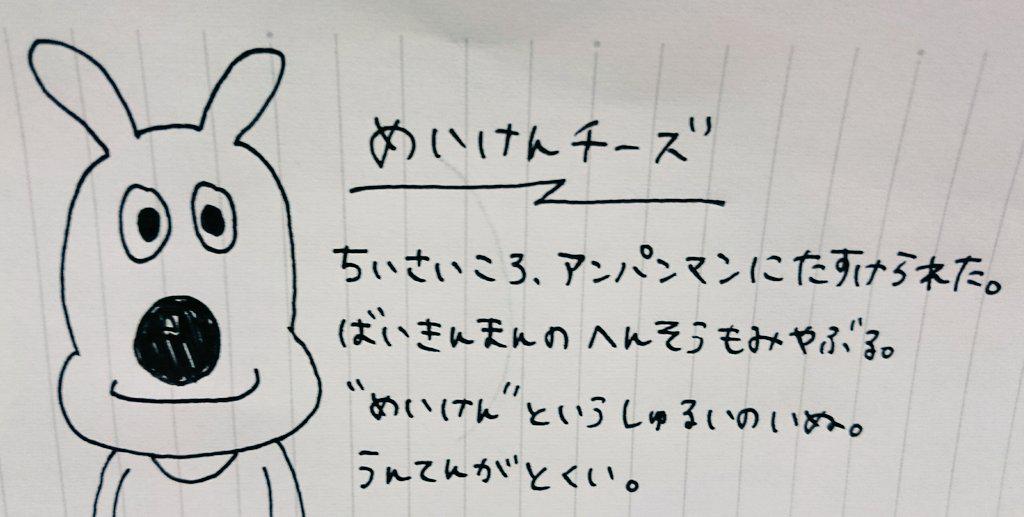 めいけんチーズ
ちいさいころ、アンパンマンにたすけられた。
ばいきんまんのへんそうもみやぶる。
"めいけん"というしゅるいのいぬ。
うんてんがとくい。